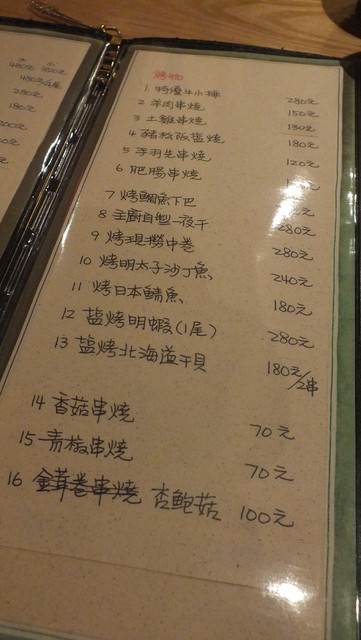 大 小
烤物
1 特優牛小排 280元
2 羊肉串燒 150元
3 土雞串燒 150元
4 豬松阪鹽燒 180元
5 手羽先串燒 120元
6 肥腸串燒
7 烤鯛魚下巴
8 主廚自製一夜干 280元
9 烤現撈中卷 280元
10 烤明太子沙丁魚 240元
11 烤日本鯖魚 180元
12 鹽烤明蝦(1尾) 280元
13 鹽烤北海道干貝 180元/2串
14 香菇串燒 70元
15 青椒串燒 70元
16 金茸卷串燒 杏鮑菇 100元